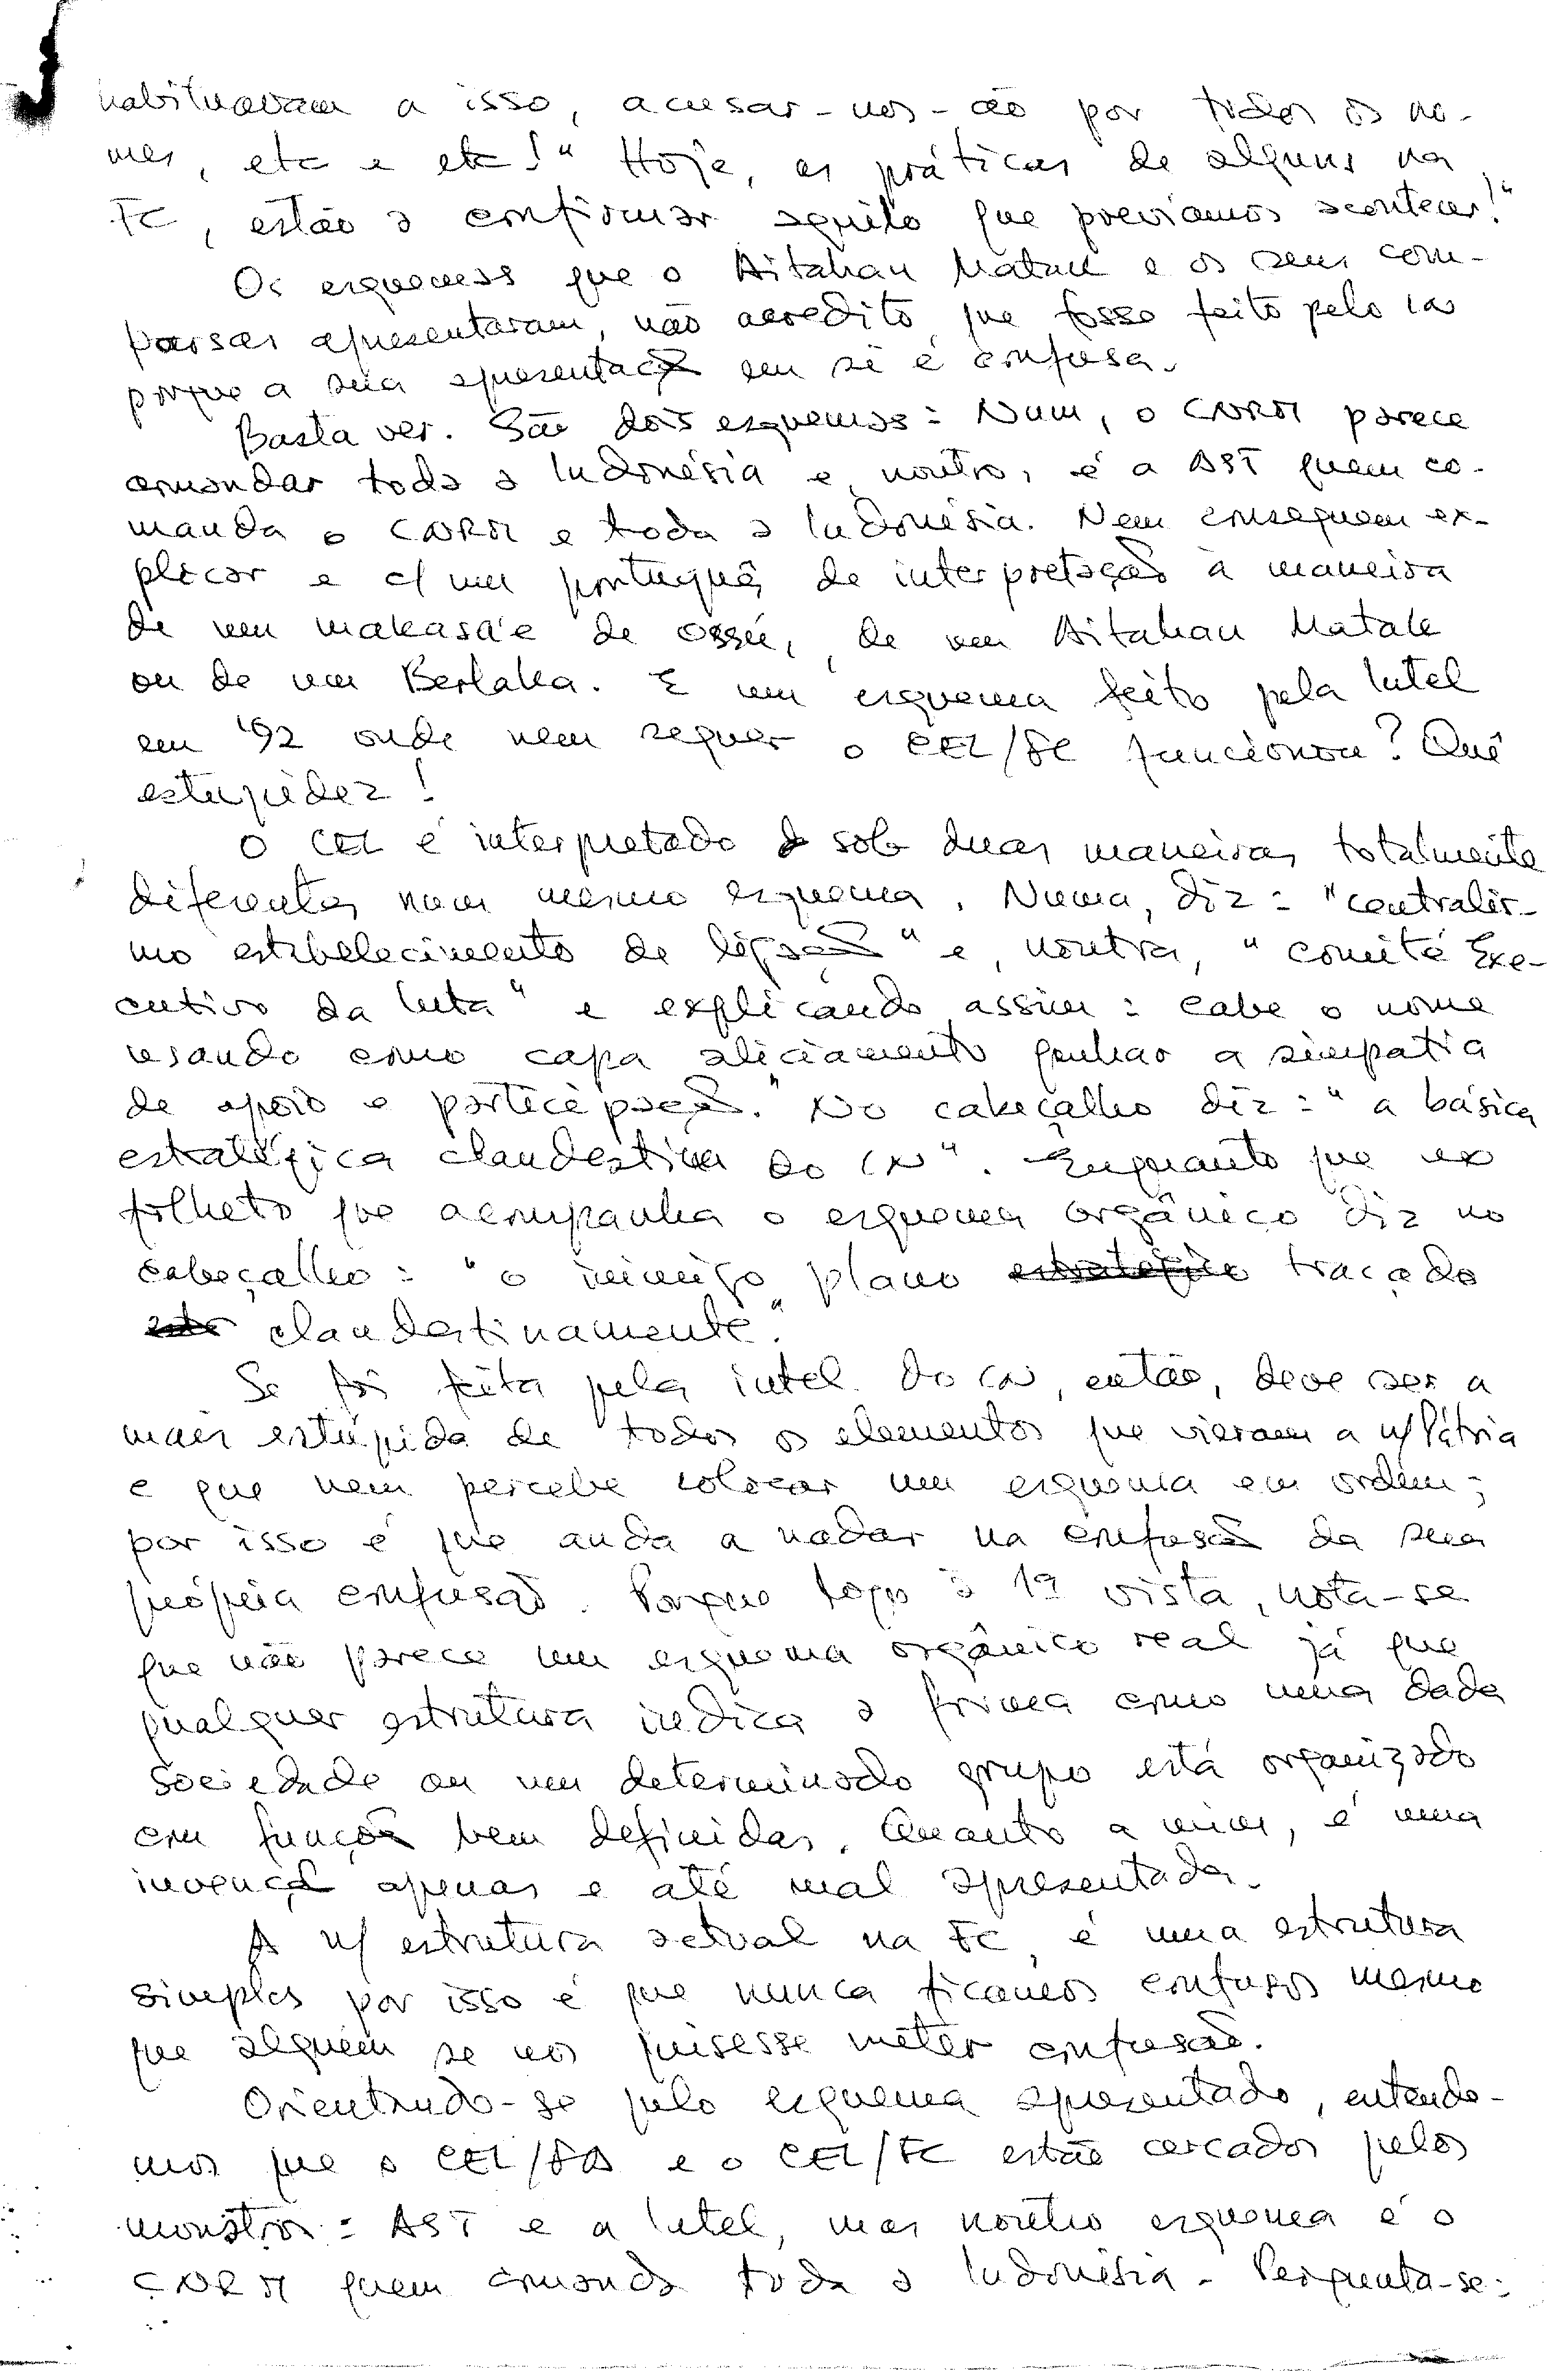 habituaram a isso, acusar-nos-ão por todos os no-
mes, etc e etc!" Hoje, as práticas de alguns na
FC, estão a confirmar aquilo que previamos acontecer!"
Os esquemas que o Aitahan Matak e os seus com-
parsas apresentaram, não acredito que fosse feito pelo in
porque a sua apresentação em si é confusa.
Basta ver. São dois esquemas: Num, o CNRM parece
comandar toda a Indonésia e noutro, é a AST quem co-
manda o CNRM e toda a Indonésia. Nem conseguem ex-
plicar e c/ um português de interpretação à maneira
de um makasa'e de Ossú, de um Aitahan Matak
ou de um Berlaka. É um esquema feito pela Intel
em '92 onde nem sequer o CEL/FC funcionou? Quê
estupidez!
O CEL é interpretado sob duas maneiras totalmente
diferentes num mesmo esquema. Numa, diz: "centralis-
mo estabelecimento de ligação" e, noutra, "comité Exe-
cutivo da luta" e explicando assim: cabe o nome
usando como capa aliciamento ganhar a simpatia
de apoio e participação." No cabeçalho diz: "a básica
estratégica clandestina do in". Enquanto que no
folheto que acompanha o esquema orgânico diz no
cabeçalho: "o inimigo plano estratégico traçado
clandestinamente".
Se foi feita pela intel. do in, então, deve ser a
mais estúpida de todos os elementos que vieram a n/ Pátria
e que nem percebe colocar um esquema em ordem;
por isso é que anda a nadar na confusão da sua
própria confusão. Porque logo à 1ª vista, nota-se
que não parece um esquema orgânico real já que
qualquer estrutura indica a forma como uma dada
sociedade ou um determinado grupo está organizado
em funções bem definidas. Quanto a mim, é uma
invenção apenas e até mal apresentada.
A n/ estrutura actual na FC, é uma estrutura
simples por isso é que nunca ficamos confusos mesmo
que alguém se nos quisesse meter confusão.
Orientando-se pelo esquema apresentado, entende-
mos que o CEL/FA e o CEL/FC estão cercados pelos
monstros: AST e a Intel, mas noutro esquema é o
CNRM quem comanda toda a Indonésia. Pergunta-se: